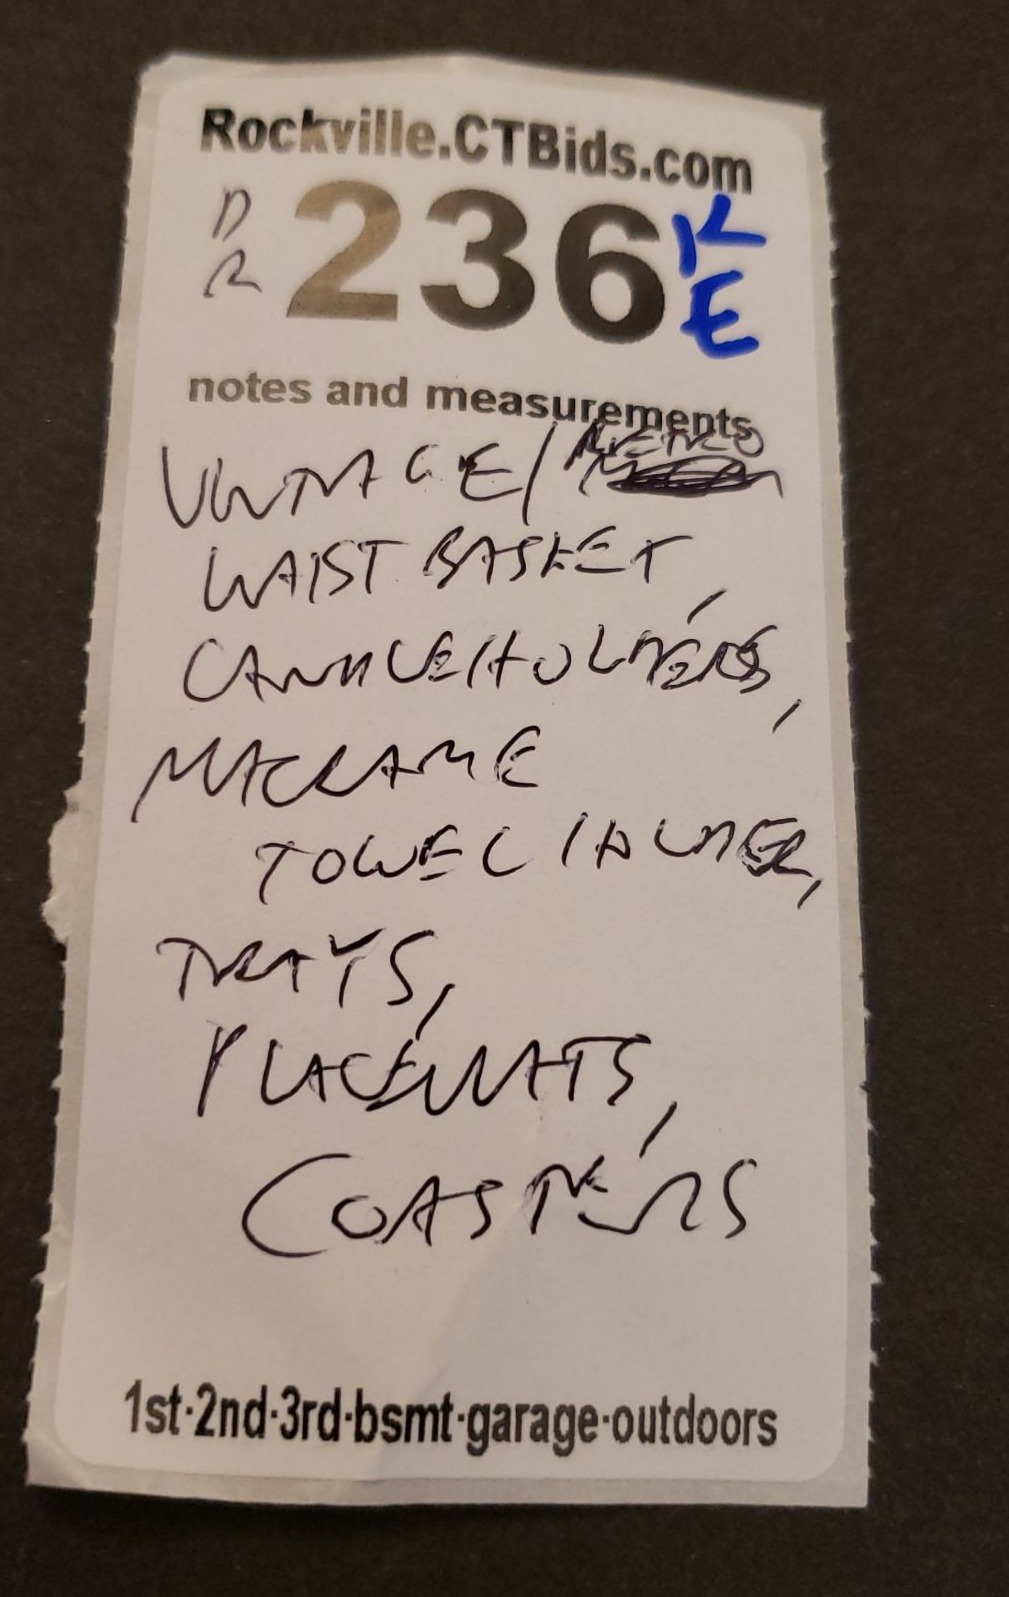 Rockville.CTBids.com
D
R
236
K
E
notes and measurements
VINTAGE/RETRO
WAIST BASKET,
CANDLE HOLDERS,
MACRAME
TOWEL HOLDER,
TRAYS,
PLACEMATS,
COASTERS
1st·2nd·3rd·bsmt·garage·outdoors